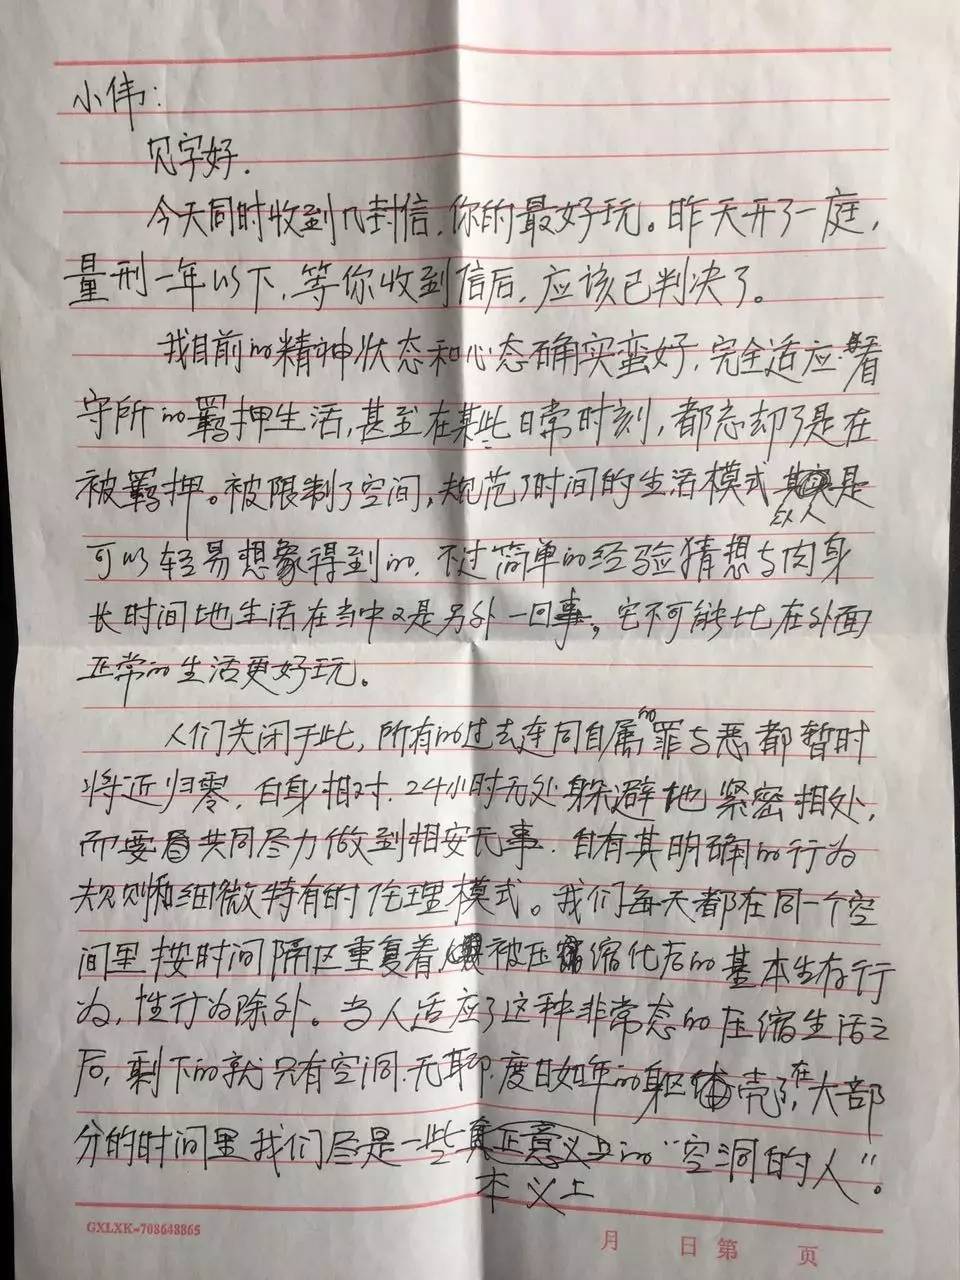 小伟：
见字好.
今天同时收到几封信,你的最好玩。昨天开了一庭,
量刑一年以下,等你收到信后,应该已判决了。
我目前的精神状态和心态确实蛮好,完全适应看
守所的羁押生活,甚至在某些日常时刻,都忘却了是在
被羁押。被限制了空间,规范了时间的生活模式是
人
可以轻易想象得到的,不过简单的经验猜想与肉身
长时间地生活在当中又是另外一回事,它不可能比在外面
正常的生活更好玩。
人们关闭于此,所有的过去连同自属的罪与恶都暂时
将近归零,自身相对,24小时无处躲避地紧密相处,
而要共同尽力做到相安无事.自有其明确的行为
规则和细微特有的伦理模式。我们每天都在同一个空
间里按时间隔区重复着被压缩化后的基本生存行
为,性行为除外。当人适应了这种非常态的压缩生活之
后,剩下的就只有空洞.无聊.度日如年的躯壳了,在大部
分的时间里我们尽是一些的“空洞的人”。
本义上
GXLXK-708648865
月 日第 页